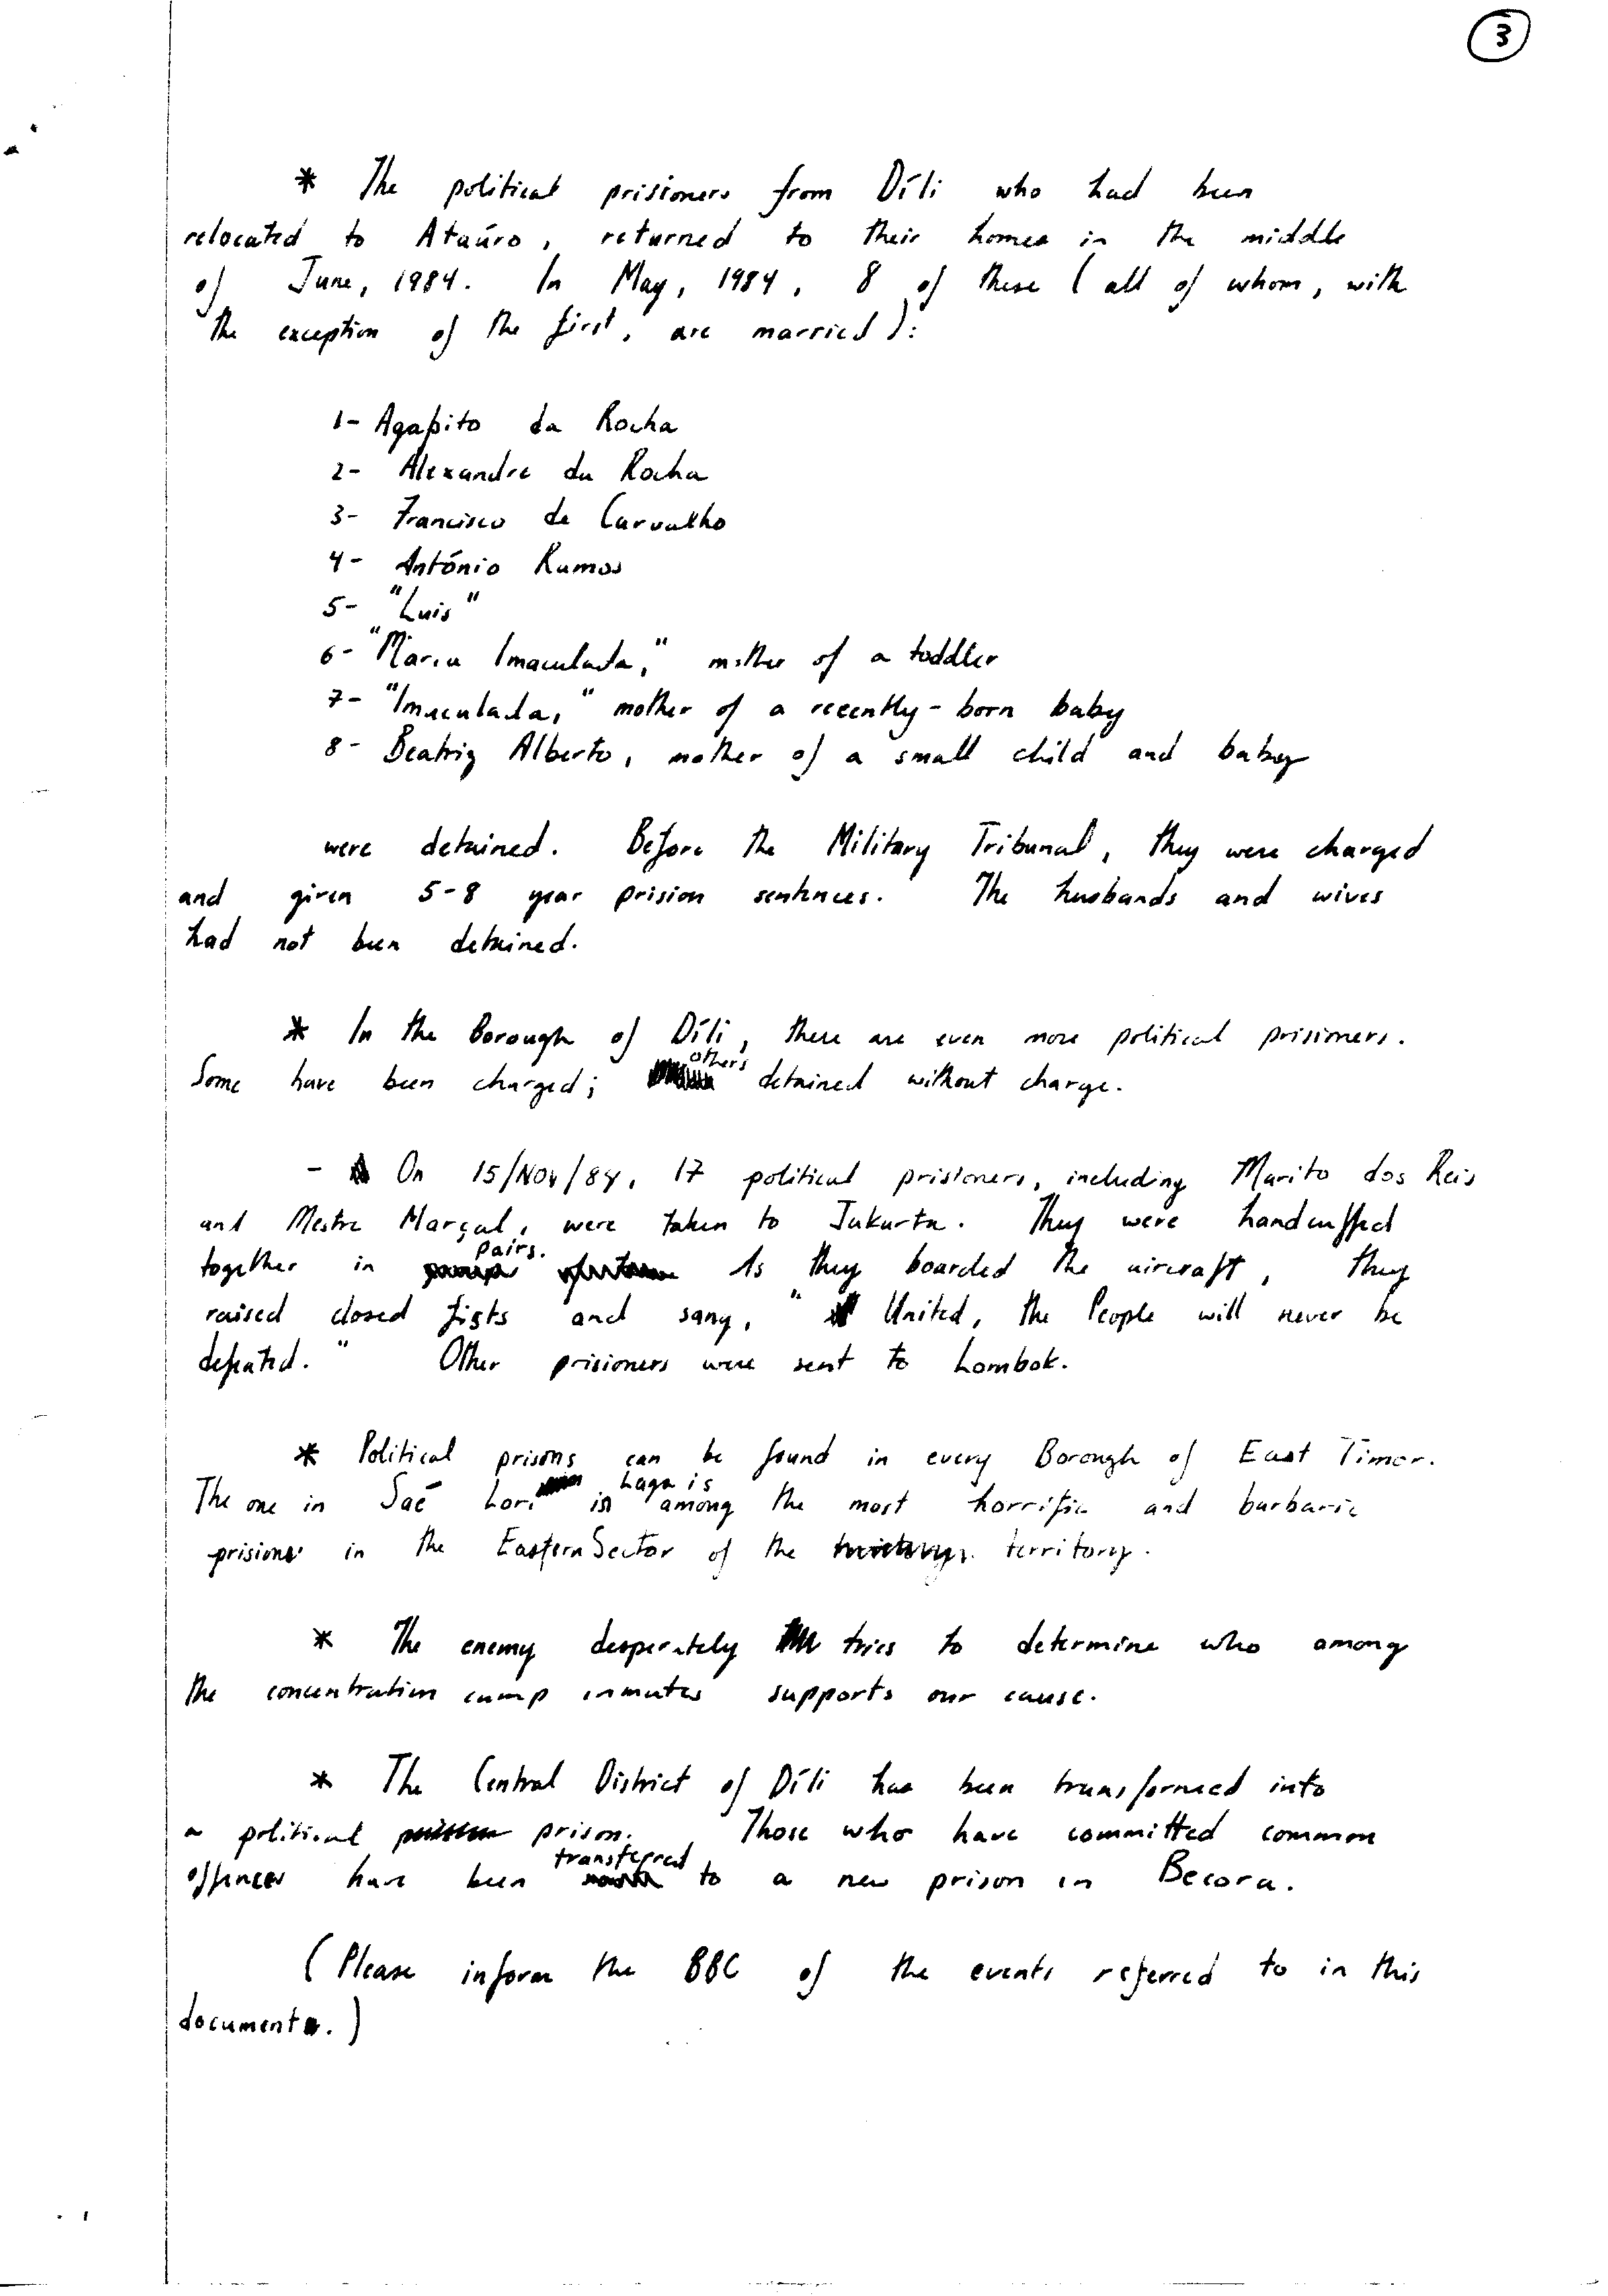 3
* The political prisioners from Díli who had been
relocated to Ataúro, returned to their homes in the middle
of June, 1984. In May, 1984, 8 of these (all of whom, with
the exception of the first, are married):
1- Agapito da Rocha
2- Alexandre da Rocha
3- Francisco de Carvalho
4- António Ramos
5- "Luis"
6- "Maria Imaculada," mother of a toddler
7- "Imaculada," mother of a recently-born baby
8- Beatriz Alberto, mother of a small child and baby
were detained. Before the Military Tribunal, they were charged
and given 5-8 year prision sentences. The husbands and wives
had not been detained.
* In the Borough of Díli, there are even more political prisioners.
Some have been charged; others detained without charge.
- On 15/NOV/84, 17 political prisioners, including Marito dos Reis
and Mestre Marçal, were taken to Jakarta. They were handcuffed
together in pairs. As they boarded the aircraft, they
raised closed fists and sang, "United, the People will never be
defeated." Other prisioners were sent to Lombok.
* Political prisons can be found in every Borough of East Timor.
The one in Saé Lori Laga is among the most horrific and barbaric
prisions in the Eastern Sector of the territory.
* The enemy desperately tries to determine who among
the concentration camp inmates supports our cause.
* The Central District of Díli has been transformed into
a political prison. Those who have committed common
offences have been transferred to a new prison in Becora.
(Please inform the BBC of the events referred to in this
document.)